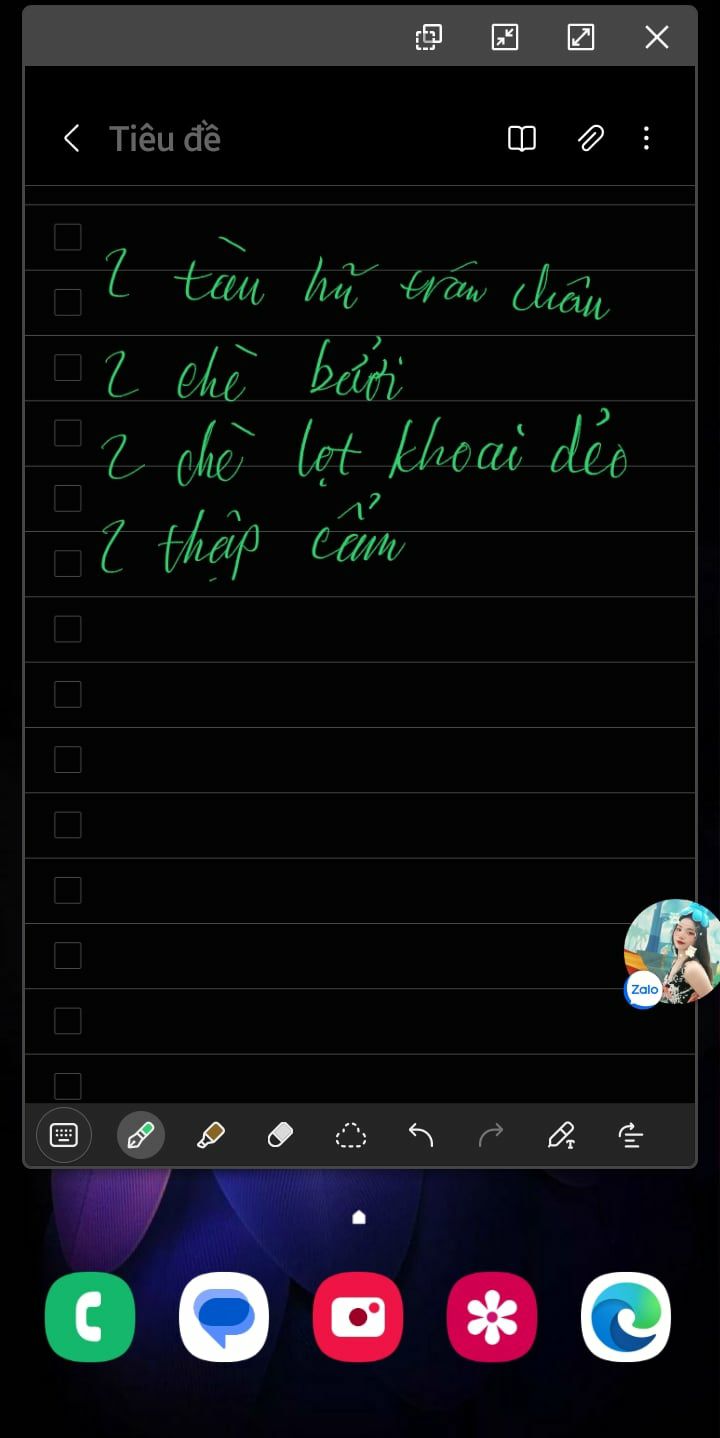 Tiêu đề
2 tàu hũ trân châu
2 chè bưởi
2 chè lọt khoai dẻo
2 thập cẩm
Zalo